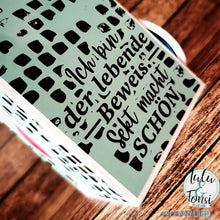 Ich bin
der Lebende
Beweis:
Sekt macht
SCHÖN.
Lulu
&
Tomsi